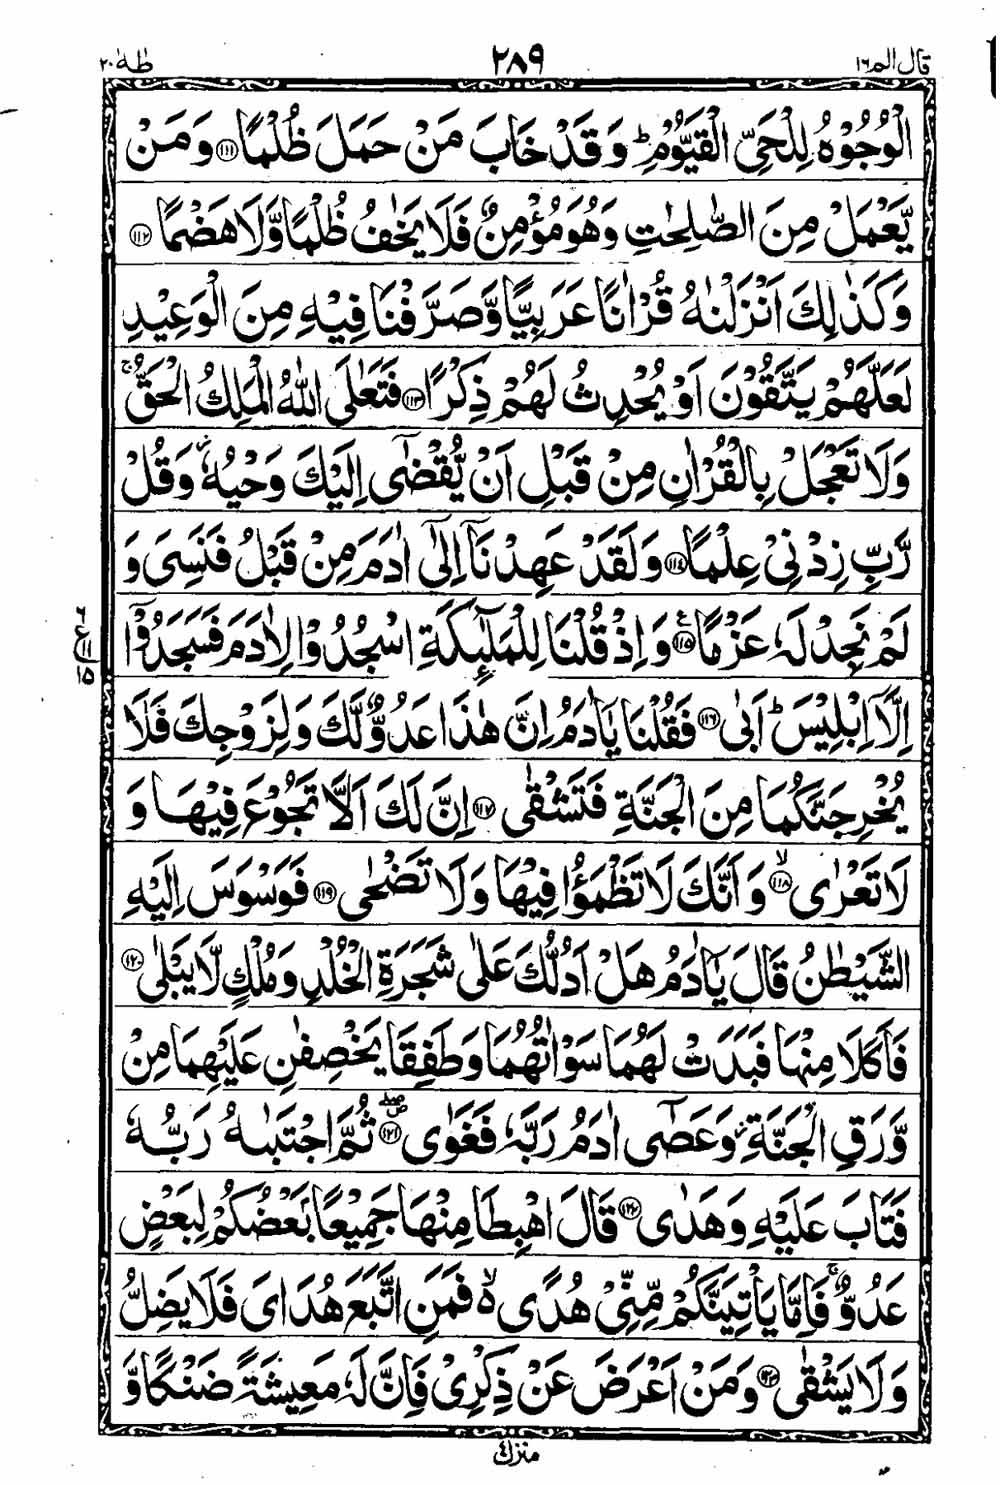 قال الم ١٦ ٢٨٩ طٰهٰ ٢٠
الْوُجُوْهُ لِلْحَيِّ الْقَيُّوْمِ ؕ وَ قَدْ خَابَ مَنْ حَمَلَ ظُلْمًا ﴿۱۱۱﴾ وَ مَنْ
يَّعْمَلْ مِنَ الصّٰلِحٰتِ وَهُوَ مُؤْمِنٌ فَلَا يَخٰفُ ظُلْمًا وَّلَا هَضْمًا ﴿۱۱۲﴾
وَ كَذٰلِكَ اَنْزَلْنٰهُ قُرْاٰنًا عَرَبِيًّا وَّ صَرَّفْنَا فِيْهِ مِنَ الْوَعِيْدِ
لَعَلَّهُمْ يَتَّقُوْنَ اَوْ يُحْدِثُ لَهُمْ ذِكْرًا ﴿۱۱۳﴾ فَتَعٰلَى اللّٰهُ الْمَلِكُ الْحَقُّ ۚ
وَلَا تَعْجَلْ بِالْقُرْاٰنِ مِنْ قَبْلِ اَنْ يُّقْضٰۤى اِلَيْكَ وَحْيُهٗ ؗ وَقُلْ
رَّبِّ زِدْنِيْ عِلْمًا ﴿۱۱۴﴾ وَلَقَدْ عَهِدْنَاۤ اِلٰۤى اٰدَمَ مِنْ قَبْلُ فَنَسِيَ وَ
لَمْ نَجِدْ لَهٗ عَزْمًا ﴿۱۱۵﴾ ع وَ اِذْ قُلْنَا لِلْمَلٰٓئِكَةِ اسْجُدُوْا لِاٰدَمَ فَسَجَدُوْۤا
اِلَّاۤ اِبْلِيْسَ ؕ اَبٰى ﴿۱۱۶﴾ فَقُلْنَا يٰۤاٰدَمُ اِنَّ هٰذَا عَدُوٌّ لَّكَ وَ لِزَوْجِكَ فَلَا
يُخْرِجَنَّكُمَا مِنَ الْجَنَّةِ فَتَشْقٰى ﴿۱۱۷﴾ اِنَّ لَكَ اَلَّا تَجُوْعَ فِيْهَا وَ
لَا تَعْرٰى ﴿۱۱۸﴾ ۙ وَ اَنَّكَ لَا تَظْمَؤُا فِيْهَا وَ لَا تَضْحٰى ﴿۱۱۹﴾ فَوَسْوَسَ اِلَيْهِ
الشَّيْطٰنُ قَالَ يٰۤاٰدَمُ هَلْ اَدُلُّكَ عَلٰى شَجَرَةِ الْخُلْدِ وَ مُلْكٍ لَّا يَبْلٰى ﴿۱۲۰﴾
فَاَكَلَا مِنْهَا فَبَدَتْ لَهُمَا سَوْاٰتُهُمَا وَ طَفِقَا يَخْصِفٰنِ عَلَيْهِمَا مِنْ
وَّرَقِ الْجَنَّةِ ؗ وَعَصٰۤى اٰدَمُ رَبَّهٗ فَغَوٰى ﴿۱۲۱﴾ ثُمَّ اجْتَبٰىهُ رَبُّهٗ
فَتَابَ عَلَيْهِ وَ هَدٰى ﴿۱۲۲﴾ قَالَ اهْبِطَا مِنْهَا جَمِيْعًۢا بَعْضُكُمْ لِبَعْضٍ
عَدُوٌّ ۚ فَاِمَّا يَاْتِيَنَّكُمْ مِّنِّيْ هُدًى ۙ۬ فَمَنِ اتَّبَعَ هُدَايَ فَلَا يَضِلُّ
وَلَا يَشْقٰى ﴿۱۲۳﴾ وَ مَنْ اَعْرَضَ عَنْ ذِكْرِيْ فَاِنَّ لَهٗ مَعِيْشَةً ضَنْكًا وَّ
منزل ٤